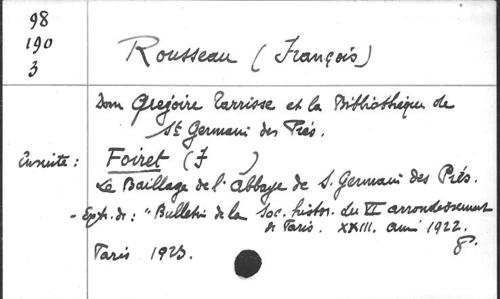 98
190
3
Rousseau (François)
Dom Grégoire Tarrisse et la Bibliothèque de
St Germain des Prés.
Ensuite : Foiret (F )
Le Baillage de l'abbaye de S. Germain des Prés.
- Extr. de : "Bulletin de la Soc. histor. du VI arrondissement
de Paris. XXIII. année 1922.
Paris 1923. 8º.